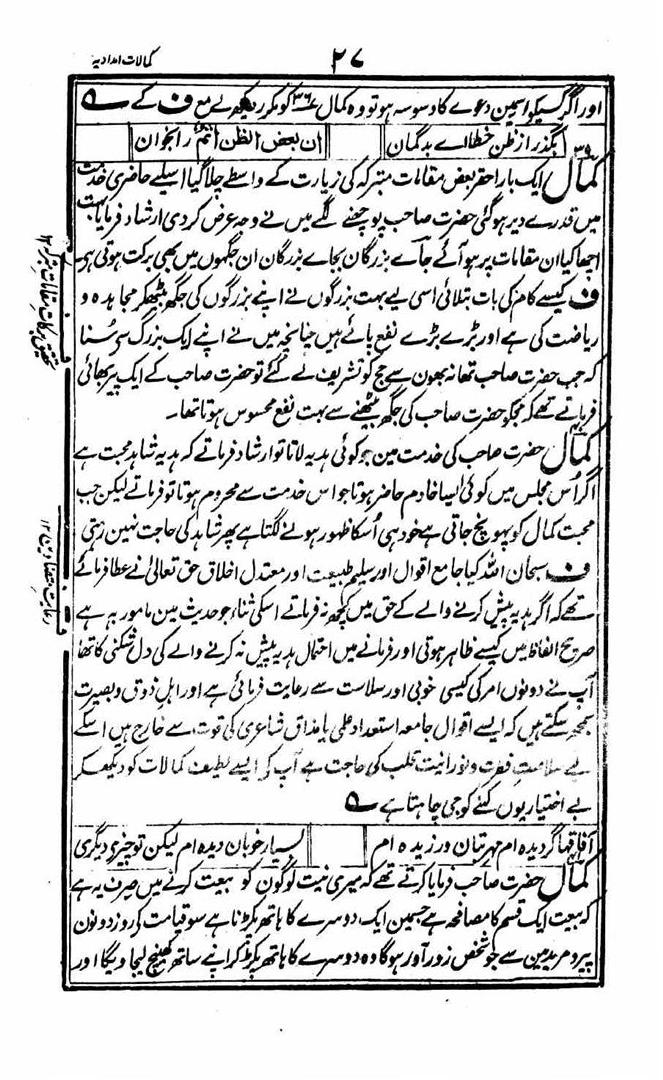 کمالات امدادیہ
۲۷
اور اگر کسیکو اسمین دعوے کا وسوسہ ہو تو وہ کمال ۳۶ کو مکرر دیکھ لے مع ف کے ؎
بگذر از ظن خطا اے بدگمان
ان بعض الظن اثم را بخوان
کمال ایک بار احقر بعض مقامات متبرکہ کی زیارت کے واسطے چلا گیا اسلیے حاضری خدمت
میں قدرے دیر ہو گئی حضرت صاحب پوچھنے لگے میں نے وجہ عرض کر دی ارشاد فرمایا بہت
اچھا کیا ان مقامات پر ہو آئے جاے بزرگان بجاے بزرگان ان جگہوں میں بھی برکت ہوتی ہی
ف کیسے کام کی بات بتلائی اسی لیے بہت بزرگوں نے اپنے بزرگوں کی جگہ بیٹھکر مجاہدہ و
ریاضت کی ہے اور بڑے بڑے نفع پائے ہیں چنانچہ میں نے اپنے ایک بزرگ سی سُنا
کہ جب حضرت صاحب تھانہ بھون سے حج کو تشریف لے گئے تو حضرت صاحب کے ایک پیر بھائی
فرماتے تھے کہ مجکو حضرت صاحب کی جگہ بیٹھنے سے بہت نفع محسوس ہوتا تھا۔
کمال حضرت صاحب کی خدمت مین جو کوئی ہدیہ لاتا تو ارشاد فرماتے کہ ہدیہ شاہد محبت ہے
اگر اُس مجلس میں کوئی ایسا خادم حاضر ہوتا جو اس خدمت سے محروم ہوتا تو فرماتے لیکن جب
محبت کمال کو پہونچ جاتی ہے خود ہی اُسکا ظہور ہونے لگتا ہے پھر شاہد کی حاجت نہین رہتی
ف سبحان اللہ کیا جامع اقوال اور سلیم طبیعت اور معتدل اخلاق حق تعالیٰ نے عطا فرمائے
تھے کہ اگر ہدیہ پیش کرنے والے کے حق میں کچھ نہ فرماتے اسکی ثناء جو حدیث مین مامور بہ ہے
صریح الفاظ میں کیسے ظاہر ہوتی اور فرمانے میں احتمال ہدیہ پیش نہ کرنے والے کی دل شکنی کا تھا
آپ نے دونوں امر کی کیسی خوبی اور سلاست سے رعایت فرمائی ہے اور اہل ذوق و بصیرت
سمجھ سکتے ہیں کہ ایسے اقوال جامعہ استعداد علمی یا مذاق شاعری کی قوت سے خارج ہیں اسکے
لیے سلامت فطرت و نورانیت قلب کی حاجت ہے آپ کی ایسے لطیف کمالات کو دیکھکر
بے اختیار یوں کہنے کو جی چاہتا ہے ؎
آفاقہا گردیدہ ام مہر بتان ورزیدہ ام
بسیار خوبان دیدہ ام لیکن تو چیزی دیگری
کمال حضرت صاحب فرمایا کرتے تھے کہ میری نیت لوگون کو بیعت کرنے میں صرف یہ ہے
کہ بیعت ایک قسم کا مصافحہ ہے جسمین ایک دوسرے کا ہاتھ پکڑنا ہے سو قیامت کی روز دونون
پیر و مرید مین سے جو شخص زور آور ہو گا وہ دوسرے کا ہاتھ پکڑ کر اپنے ساتھ کھینچ لیجاویگا اور